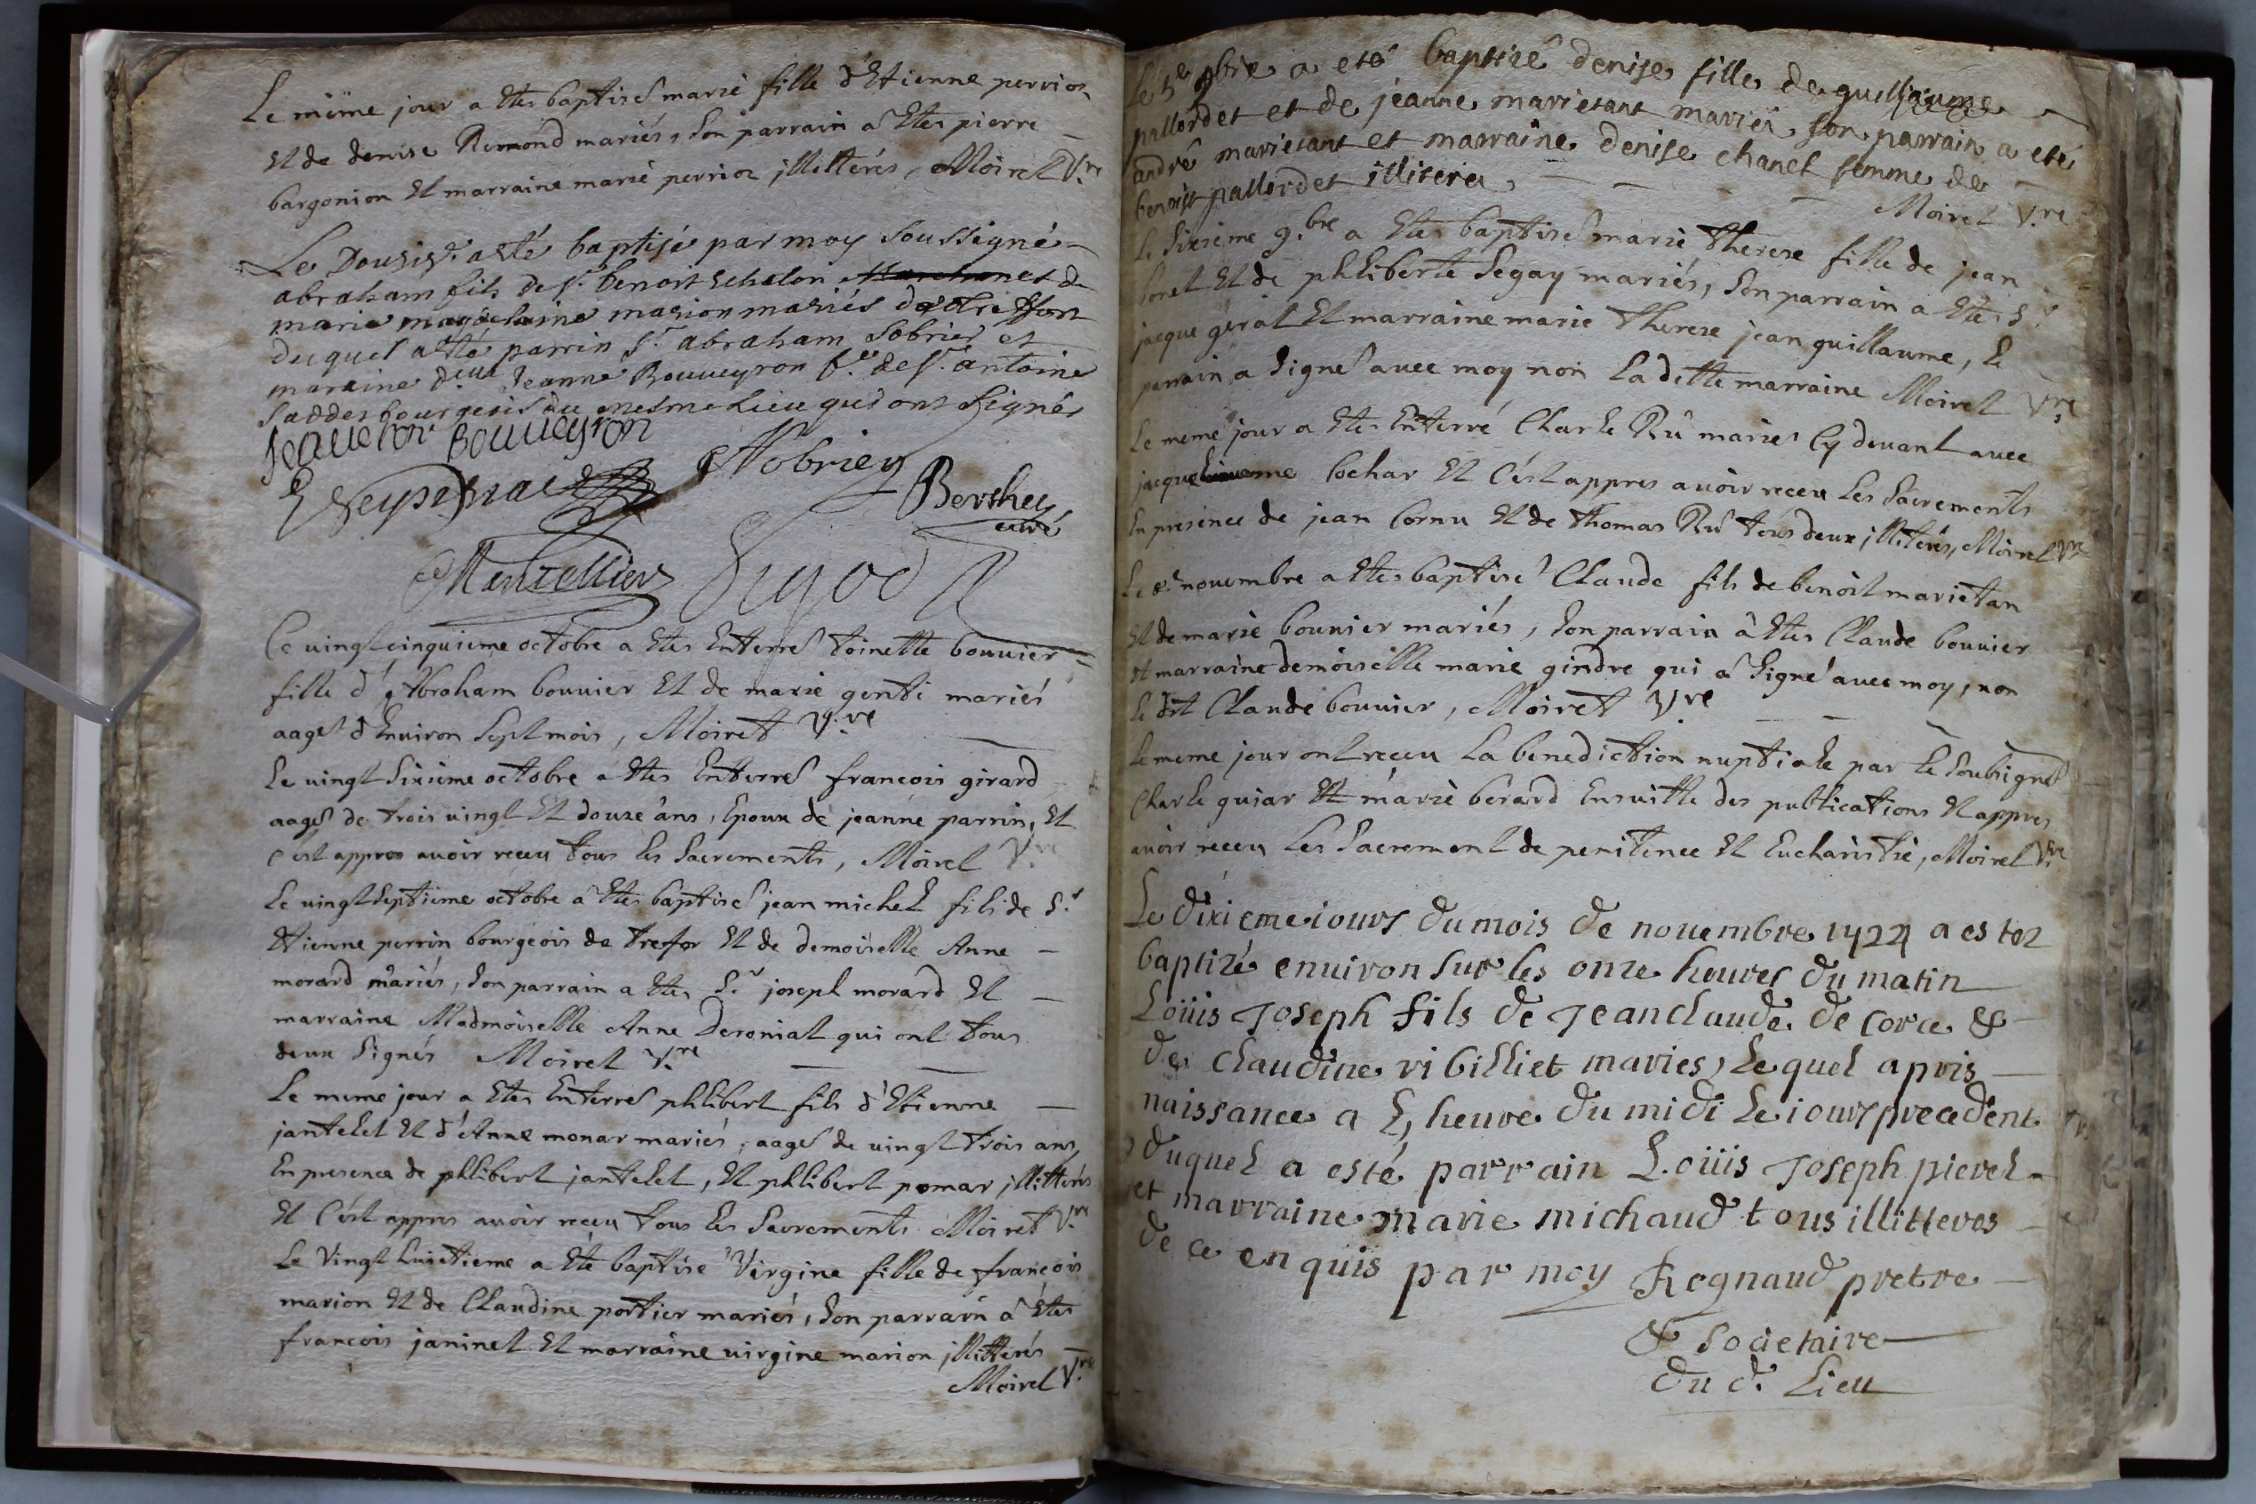 Le même jour a Etés baptisé marie fille d'Etienne perrior
Et de denise Remond mariés, son parrain a Etés pierre
bargonion Et marraine marie perrior illitterés, Moiret V.re
Le Dousis.e a esté baptisé par moy Soussigné
abraham fils de s.r benoit Echalon et de
marie magdelaine marion mariés de treffort
duquel a esté parrin s.r abraham Sobrier et
maraine d.elle Jeanne Bouveyron f.e de s.r antoine
Saddes bourgeois du mesme lieu qui ont signés
Jeaneton Bouveyron
Sobrier
Berthet
curé
Montellier
Ce vingt cinquieme octobre a Etés Enterré toinette bouvier
fille d'Abraham bouvier Et de marie genti mariés
aagé d'Environ Sept mois, Moiret V.re
Le vingt Sixieme octobre a Etés Enterré francois girard
aagé de trois vingt Et douze ans, Epoux de jeanne parrin, Et
c'est appres avoir receu tous les Sacrements, Moiret V.re
Le vingt Septieme octobre a Etés baptisé jean michel fils de S.r
Etienne perrin bourgeois de trefor Et de demoiselle Anne
morard mariés, Son parrain a Etés S.r joseph morard Et
marraine Madmoiselle Anne Deronial qui ont tous
deux Signés Moiret V.re
Le meme jour a Etés Enterré phlibert fils d'Etienne
jantelet Et d'Anne monar mariés, aagé de vingt trois ans,
En presence de phlibert jantelet, Et phlibert pomar illitterés
Et C'est appres avoir receu tous les Sacrements Moiret V.re
Le Vingt huictieme a Eté baptisé Virgine fille de françois
marion Et de Claudine portier mariés, Son parrain a Etés
françois janinet Et marraine virgine marion illitterés
Moiret V.re
Le 5e 9bre a eté baptizé denise fille de guillaume
pallordet et de jeanne marietant mariés son parrain a eté
andré marietant et marraine denise chanel femme de
benoist pallordet illiterés
Moiret V.re
Le Sixieme 9.bre a Etés baptisé marie therese fille de jean
bonet Et de phliberte Segay mariés, Son parrain a Etés S.r
jacque geral Et marraine marie therese jean guillaume, le
parrain a Signé avec moy non la ditte marraine Moiret V.re
Le meme jour a Etés Enterré Charle Ru marié Cy devant avec
jacqueme Cochar Et C'est appres avoir receu les Sacrements
En presence de jean Cornu Et de thomas Ru tous deux illiterés, Moiret V.re
Le 8.e novembre a Etés baptisé Claude fils de benoit marietan
Et de marie bouvier mariés, Son parrain a Etés Claude bouvier
et marraine demoiselle marie gindre qui a Signé avec moy, non
le dit Claude bouvier, Moiret V.re
Le meme jour ont receu la benediction nuptiale par le Soubsigné
Charle guiar Et marie berard Ensuitte des publications Et appres
avoir receu les Sacrement de penitence Et Eucharistie, Moiret V.re
Le dixieme iours du mois de novembre 1724 a estez
baptizé environ sur les onze heures du matin
Loüis Joseph fils de Jeanclaude de corce &
de claudine ribilliet maries, lequel a pris
naissance a l'heure du midi le iours precedent
duquel a esté parrain Loüis Joseph pierel
et marraine marie michaud tous illitteres
de ce enquis par moy Regnaud pretre
& societaire
du d. Lieu